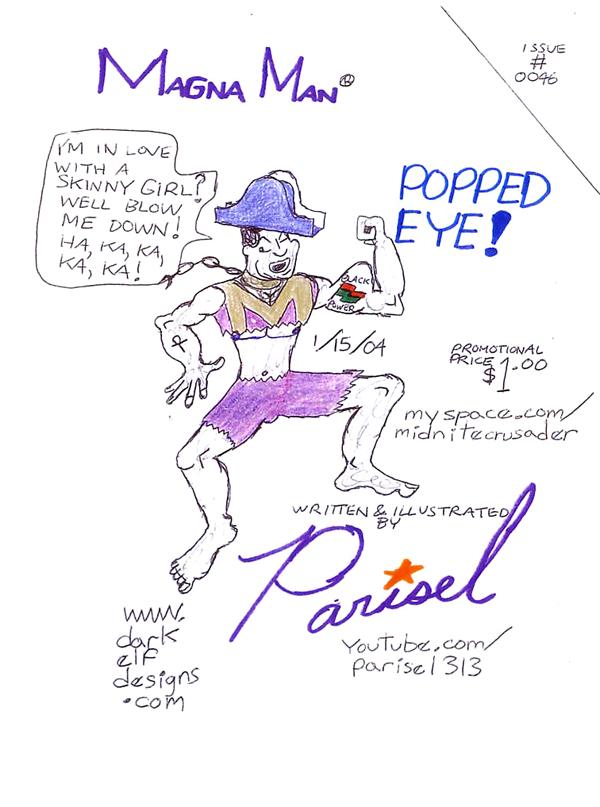 MAGNA MAN®
ISSUE
#
0046
I'M IN LOVE
WITH A
SKINNY GIRL?
WELL BLOW
ME DOWN!
HA, KA, KA,
KA, KA!
POPPED
EYE!
BLACK
POWER
1/15/04
PROMOTIONAL
PRICE $1.00
myspace.com/
midnitecrusader
WRITTEN & ILLUSTRATED
BY
Parisel
www.
dark
elf
designs
.com
Youtube.com/
parisel313